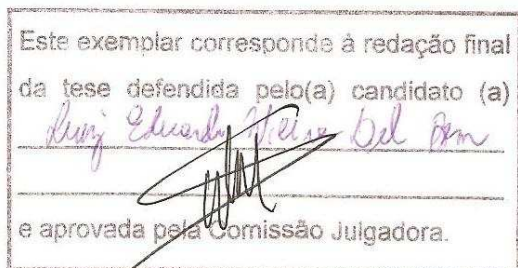 Este exemplar corresponde à redação final
da tese defendida pelo(a) candidato (a)
Luiz Eduardo Vieira Del Bem
e aprovada pela Comissão Julgadora.